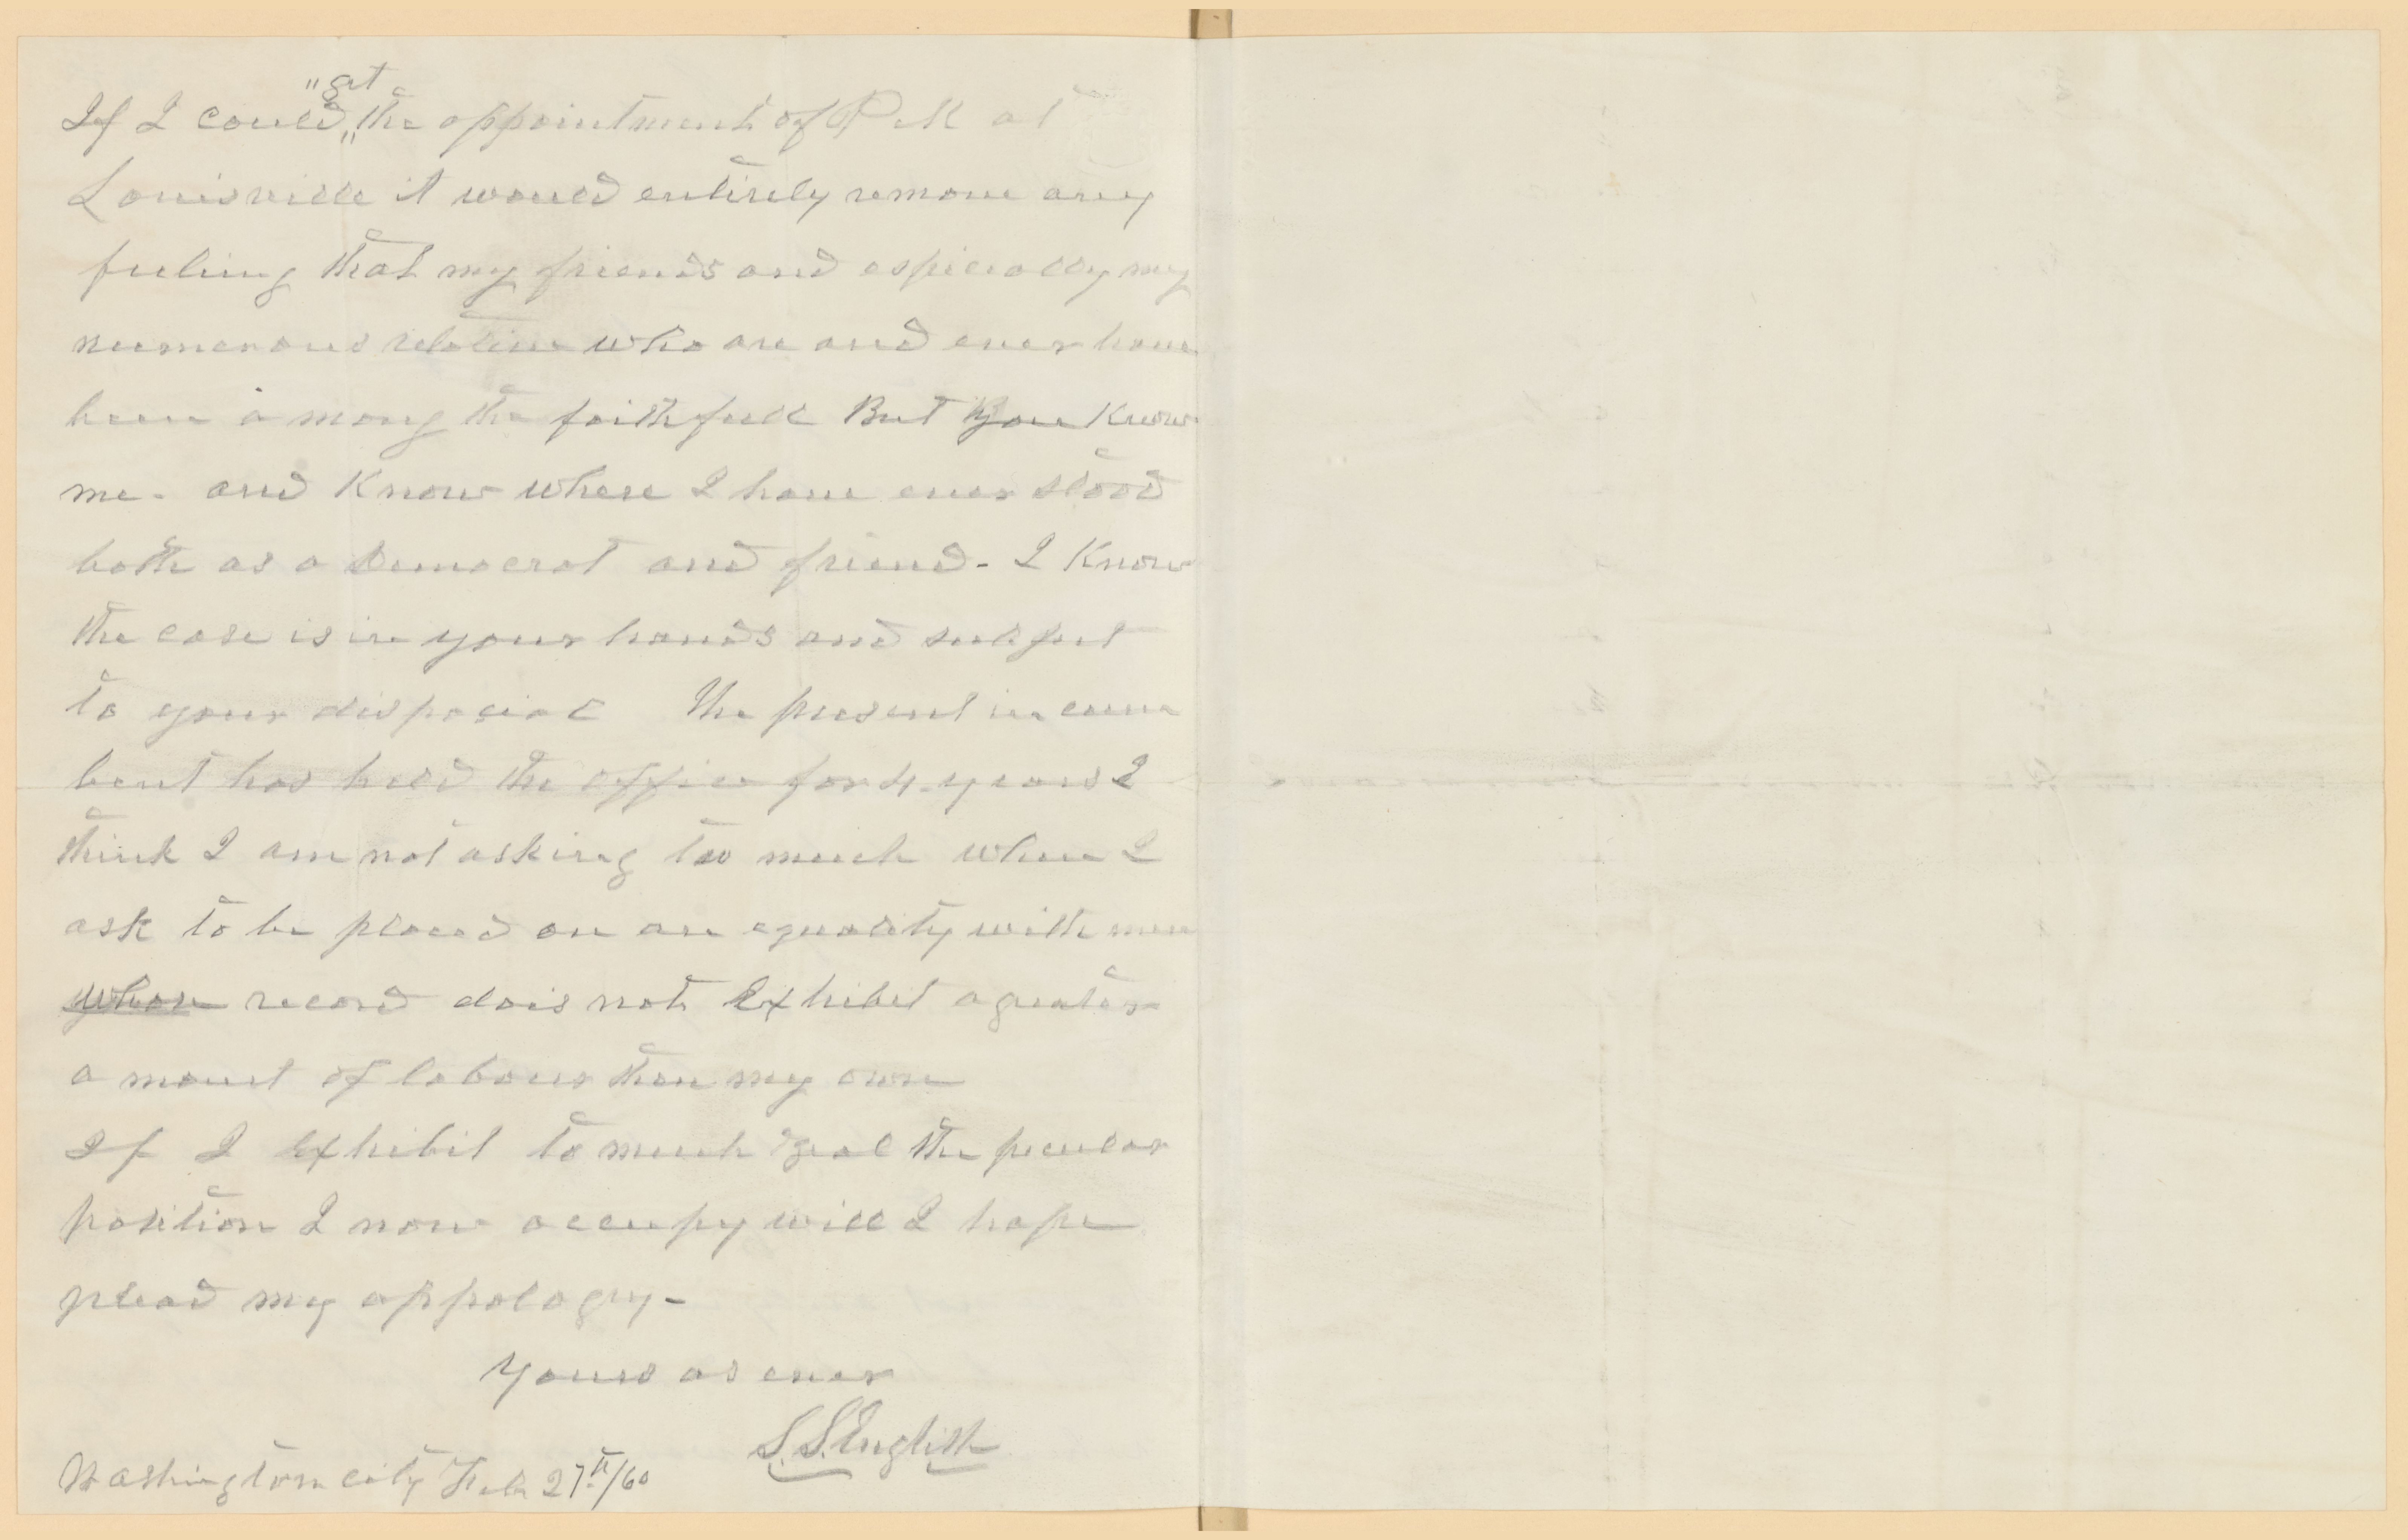 "get
If I could „ the appointment of P. M at
Louisville it would entirely remove any
feeling that my friends and especially my
numerous relative who are and ever have
been among the faithfull But you Know
me - and Know where I have ever stood
both as a Democrat and friend - I Know
the case is in your hands and subject
to your disposial The present incum
bent has held the office for 4 years I
think I am not asking too much when I
ask to be placed on an equality with men
whose record dois not Exhibit a greater
amount of labour than my own
If I Exhibit to much zeal the peculer
position I now occupy will I hope
plead my appology -
Yours as ever
S. S. English
Washington city Feb 27th/60